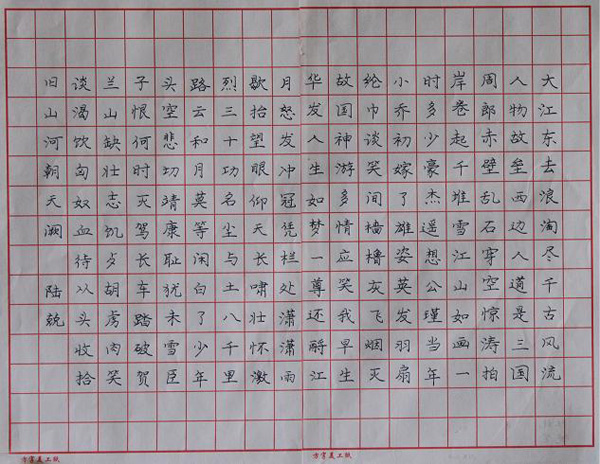 大江东去浪淘尽千古风流
人物故垒西边人道是三国
周郎赤壁乱石穿空惊涛拍
岸卷起千堆雪江山如画一
时多少豪杰遥想公瑾当年
小乔初嫁了雄姿英发羽扇
纶巾谈笑间樯橹灰飞烟灭
故国神游多情应笑我早生
华发人生如梦一尊还酹江
月怒发冲冠凭栏处潇潇雨
歇抬望眼仰天长啸壮怀激
烈三十功名尘与土八千里
路云和月莫等闲白了少年
头空悲切靖康耻犹未雪臣
子恨何时灭驾长车踏破贺
兰山缺壮志饥歺胡虏肉笑
谈渴饮匈奴血待从头收拾
旧山河朝天阙 陆